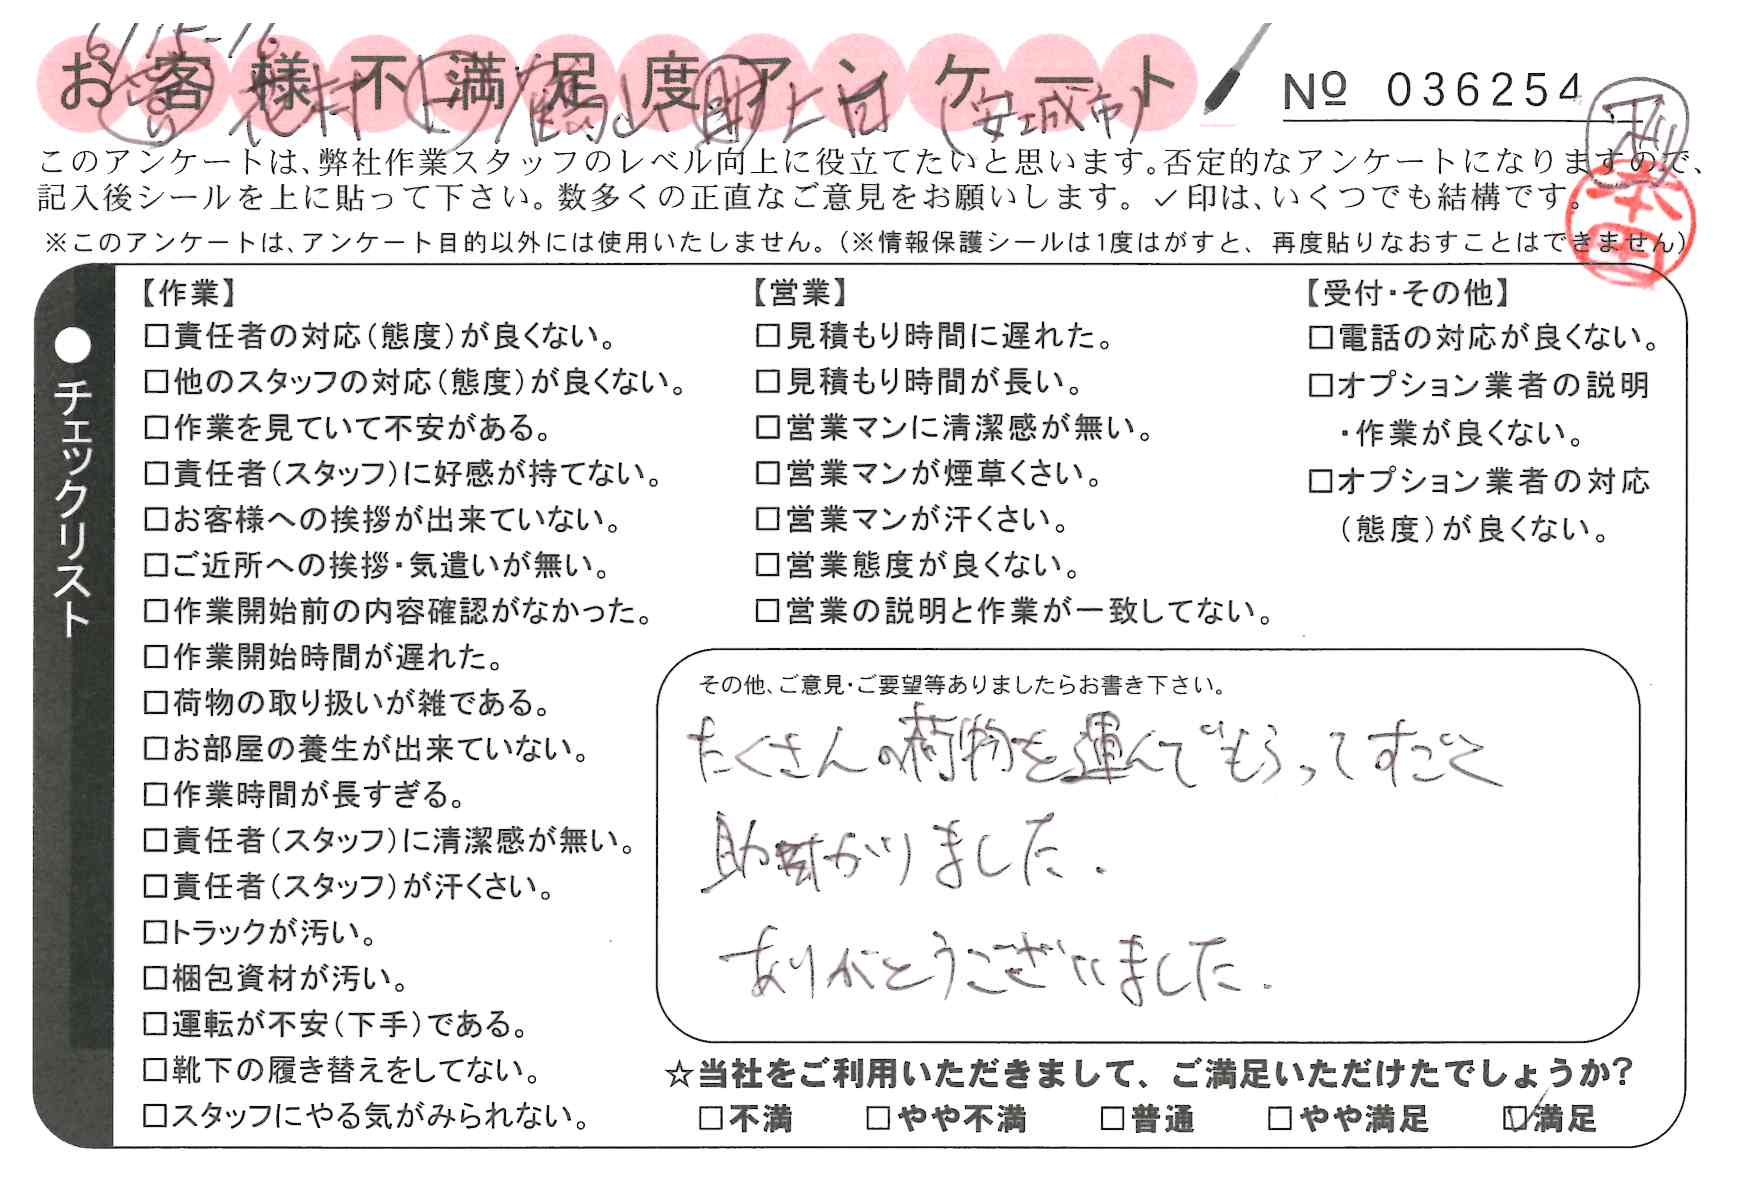 6/15-16
お客様不満足度アンケート
№ 036254
花村 上 (安城市)
このアンケートは、弊社作業スタッフのレベル向上に役立てたいと思います。否定的なアンケートになりますので、
記入後シールを上に貼って下さい。数多くの正直なご意見をお願いします。✓印は、いくつでも結構です。
本田
※このアンケートは、アンケート目的以外には使用いたしません。(※情報保護シールは1度はがすと、再度貼りなおすことはできません)
●チェックリスト
【作業】
□責任者の対応(態度)が良くない。
□他のスタッフの対応(態度)が良くない。
□作業を見ていて不安がある。
□責任者(スタッフ)に好感が持てない。
□お客様への挨拶が出来ていない。
□ご近所への挨拶・気遣いが無い。
□作業開始前の内容確認がなかった。
□作業開始時間が遅れた。
□荷物の取り扱いが雑である。
□お部屋の養生が出来ていない。
□作業時間が長すぎる。
□責任者(スタッフ)に清潔感が無い。
□責任者(スタッフ)が汗くさい。
□トラックが汚い。
□梱包資材が汚い。
□運転が不安(下手)である。
□靴下の履き替えをしてない。
□スタッフにやる気がみられない。
【営業】
□見積もり時間に遅れた。
□見積もり時間が長い。
□営業マンに清潔感が無い。
□営業マンが煙草くさい。
□営業マンが汗くさい。
□営業態度が良くない。
□営業の説明と作業が一致してない。
【受付・その他】
□電話の対応が良くない。
□オプション業者の説明
・作業が良くない。
□オプション業者の対応
(態度)が良くない。
その他、ご意見・ご要望等ありましたらお書き下さい。
たくさんの荷物を運んでもらってすごく
助かりました.
ありがとうございました.
☆当社をご利用いただきまして、ご満足いただけたでしょうか?
□不満 □やや不満 □普通 □やや満足 ☑満足